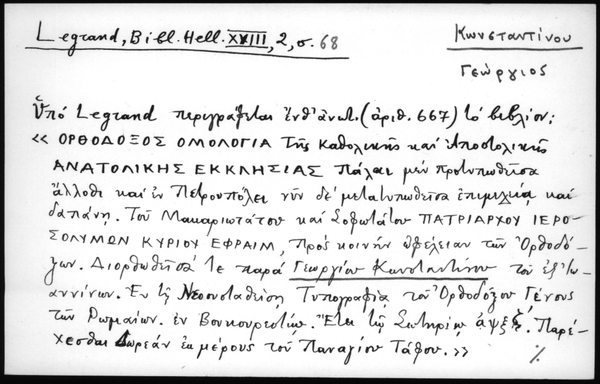 Legrand, Bibl. Hell. XVIII, 2, σ. 68
Κωνσταντίνου
Γεώργιος
Ὑπό Legrand περιγράφεται ἐνθ' ἀνωτ. (ἀριθ. 667) τό βιβλίον:
« ΟΡΘΟΔΟΞΟΣ ΟΜΟΛΟΓΙΑ τῆς καθολικῆς καί Ἀποστολικῆς
ΑΝΑΤΟΛΙΚΗΣ ΕΚΚΛΗΣΙΑΣ πάλαι μέν προτυπωθεῖσα
ἄλλοθι καί ἐν Πετρουπόλει νῦν δέ μετατυπωθεῖσα ἐπιμελείᾳ καί
δαπάνῃ. Τοῦ Μακαριωτάτου καί Σοφωτάτου ΠΑΤΡΙΑΡΧΟΥ ΙΕΡΟ-
ΣΟΛΥΜΩΝ ΚΥΡΙΟΥ ΕΦΡΑΙΜ, πρός κοινήν ὠφέλειαν τῶν Ὀρθοδό-
ξων. Διορθωθεῖσά τε παρά Γεωργίου Κωνσταντίνου τοῦ ἐξ Ἰω-
αννίνων. Ἐν τῇ Νεοσυσταθείσῃ Τυπογραφίᾳ τοῦ Ὀρθοδόξου Γένους
τῶν Ρωμαίων. ἐν Βουκουρεστίῳ. Ἔτει τῷ Σωτηρίῳ ,αψξς. Παρέ-
χεσθαι Δωρεάν ἐκ μέρους τοῦ Παναγίου Τάφου. »
%